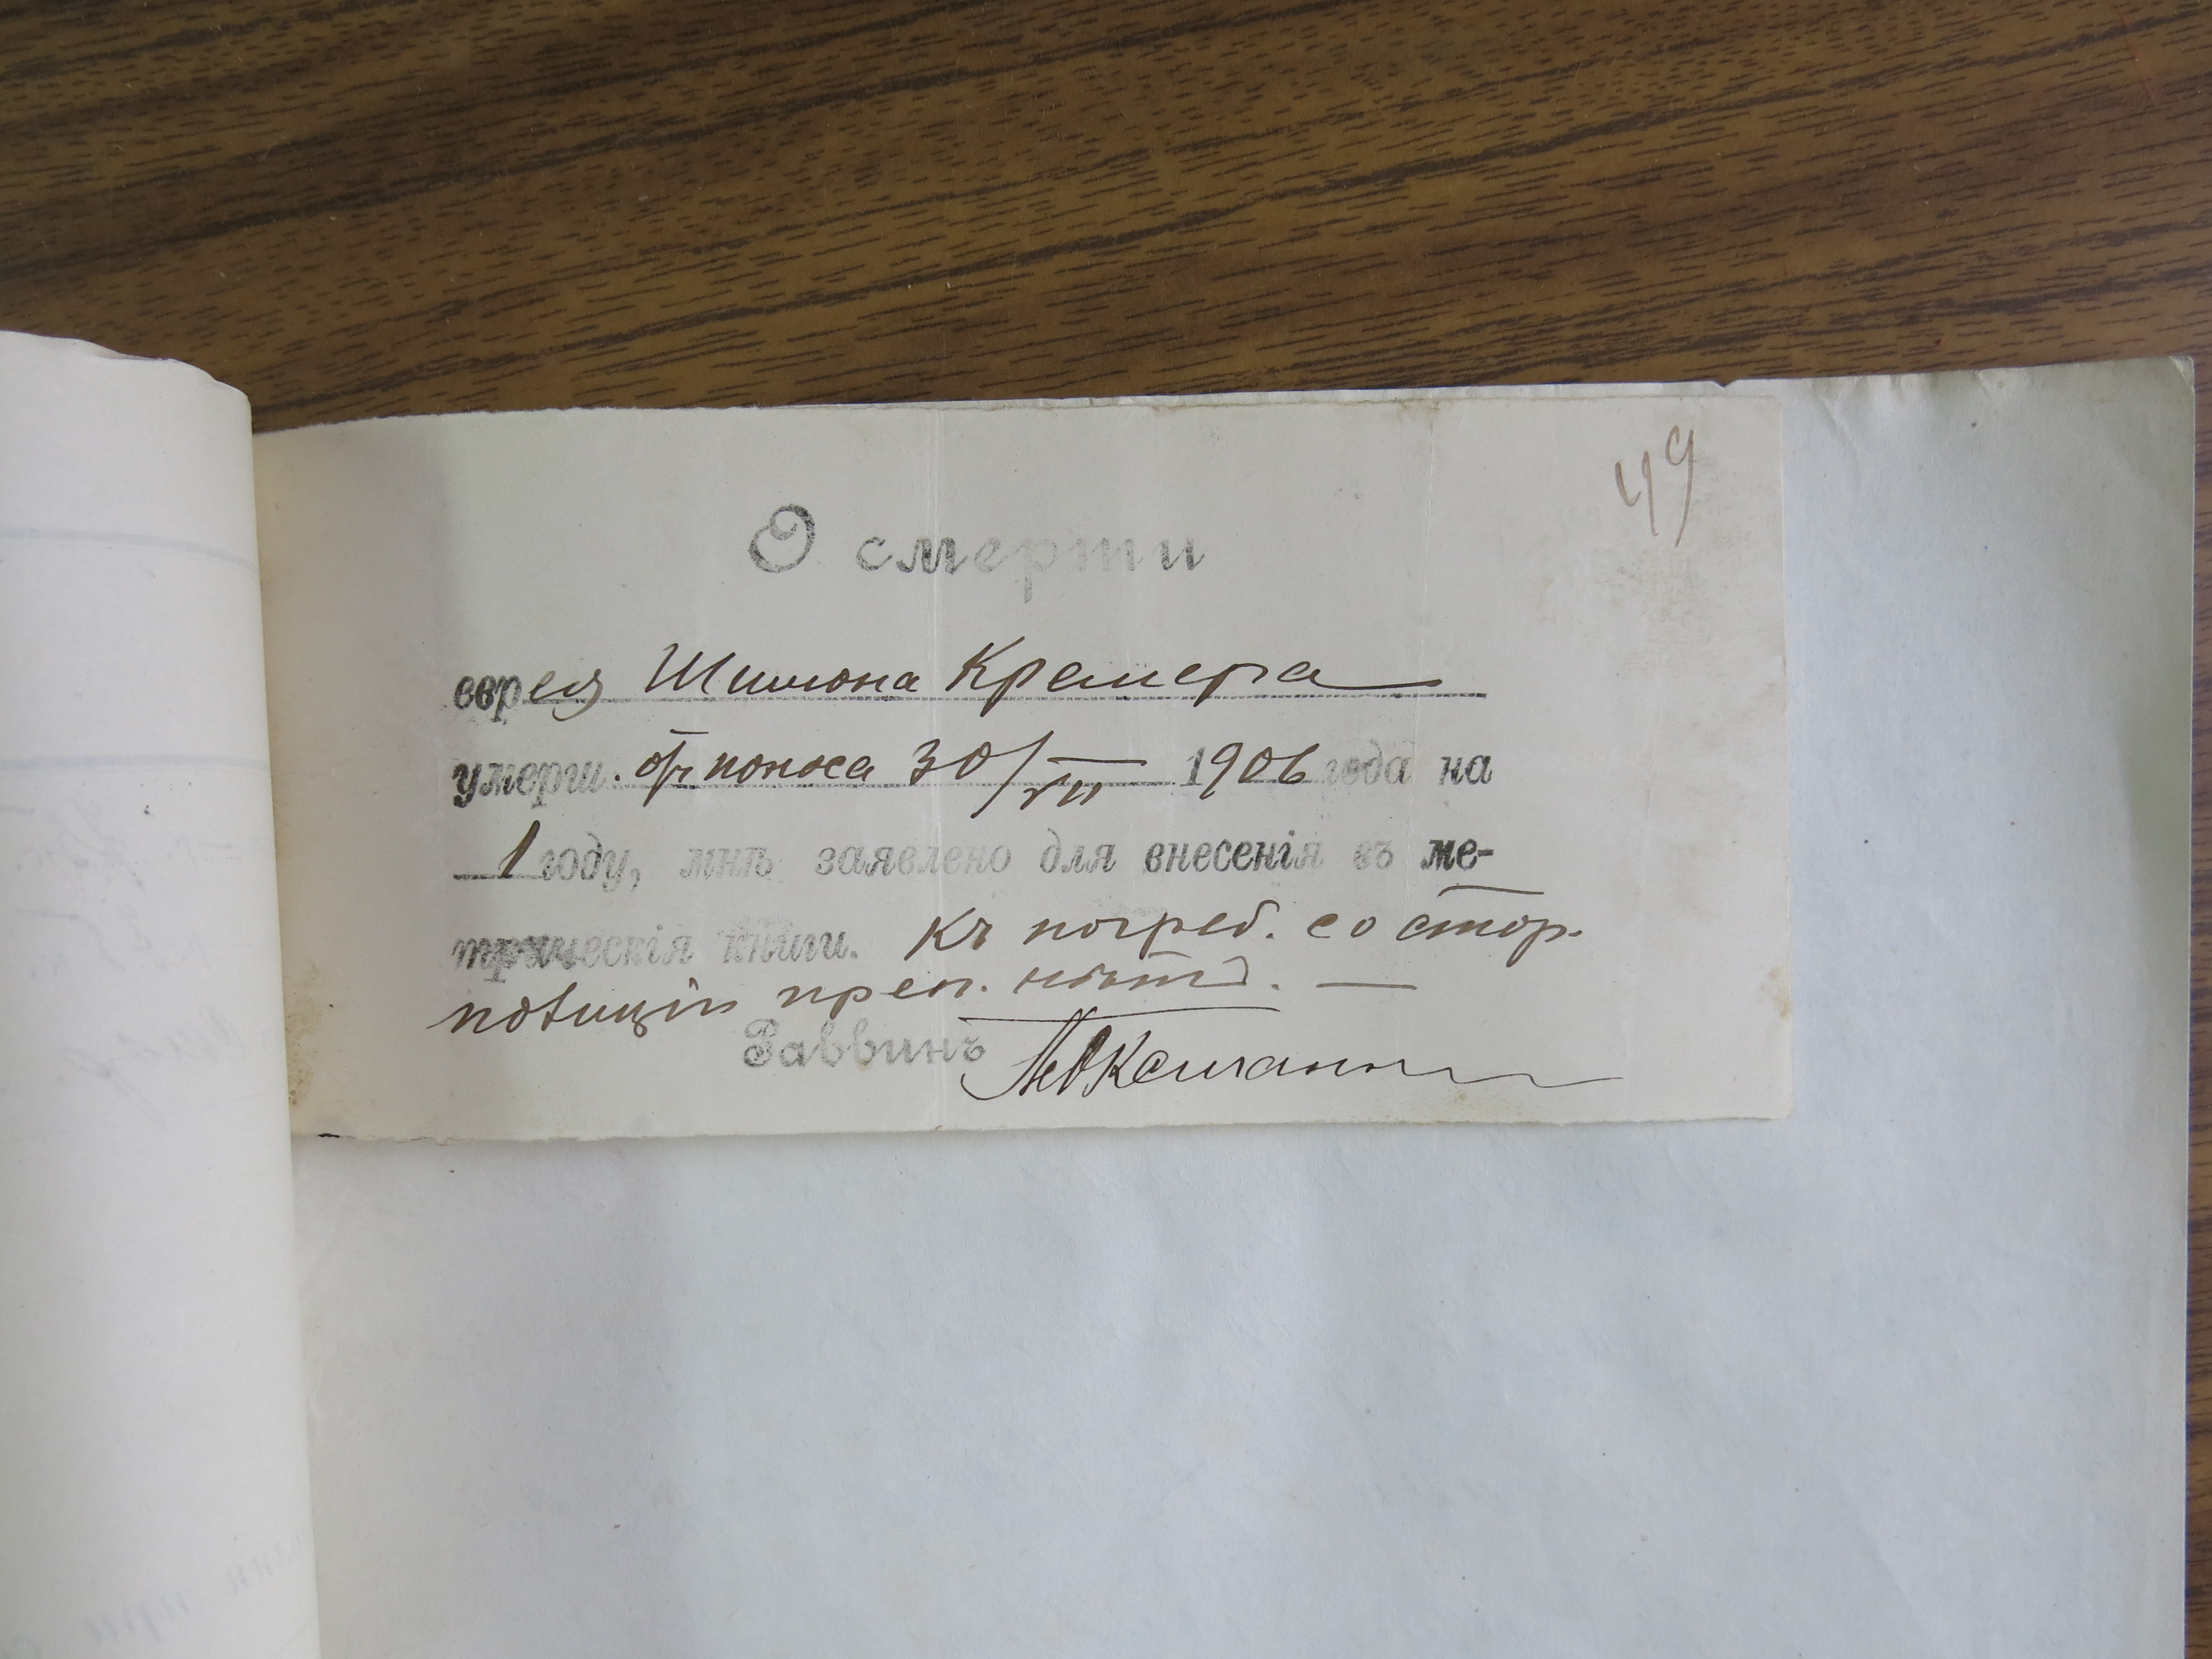 49
О смерти
еврея Шимона Кремера
умерш. отъ поноса 30/VII 1906 года на
1 году, мнѣ заявлено для внесенія въ ме-
трическія книги. Къ погреб. со стор.
полиціи преп. нѣтъ. —
Раввинъ